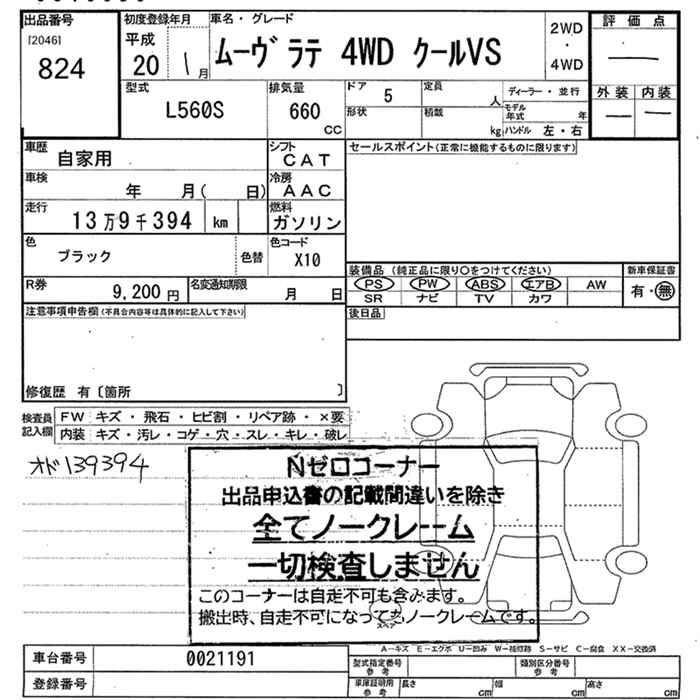 出品番号
[2046]
824
初度登録年月
平成
20 1 月
車名・グレード
ムーヴラテ 4WD クールVS
2WD
・
4WD
評価点
外装 内装
型式
L560S
排気量
660
CC
ドア 5
定員 人
ディーラー・並行
形状
積載 kg
モデル年式 年
ハンドル 左・右
車歴 自家用
シフト CAT
車検 年 月( 日)
冷房 AAC
走行 13万9千394 km
燃料 ガソリン
色 ブラック 色替
色コード X10
R券 9,200 円
名変通知期限 月 日
セールスポイント(正常に機能するものに限ります)
装備品 (純正品に限り○をつけてください)
PS PW ABS エアB AW
SR ナビ TV カワ
新車保証書
有・無
後日品
注意事項申告欄(不具合内容等は具体的に記入して下さい)
修復歴 有〔箇所 〕
検査員記入欄
FW キズ・飛石・ヒビ割・リペア跡・×要
内装 キズ・汚レ・コゲ・穴・スレ・キレ・破レ
オド139394
Nゼロコーナー
出品申込書の記載間違いを除き
全てノークレーム
一切検査しません
このコーナーは自走不可も含みます。
搬出時、自走不可になってもノークレームです。
スペア
A-キズ E-エクボ U-凹み W-補修跡 S-サビ C-腐食 XX-交換済
車台番号 0021191
登録番号
型式指定番号 参考
類別区分番号 参考
車庫証明用 参考
長さ cm 幅 cm 高さ cm